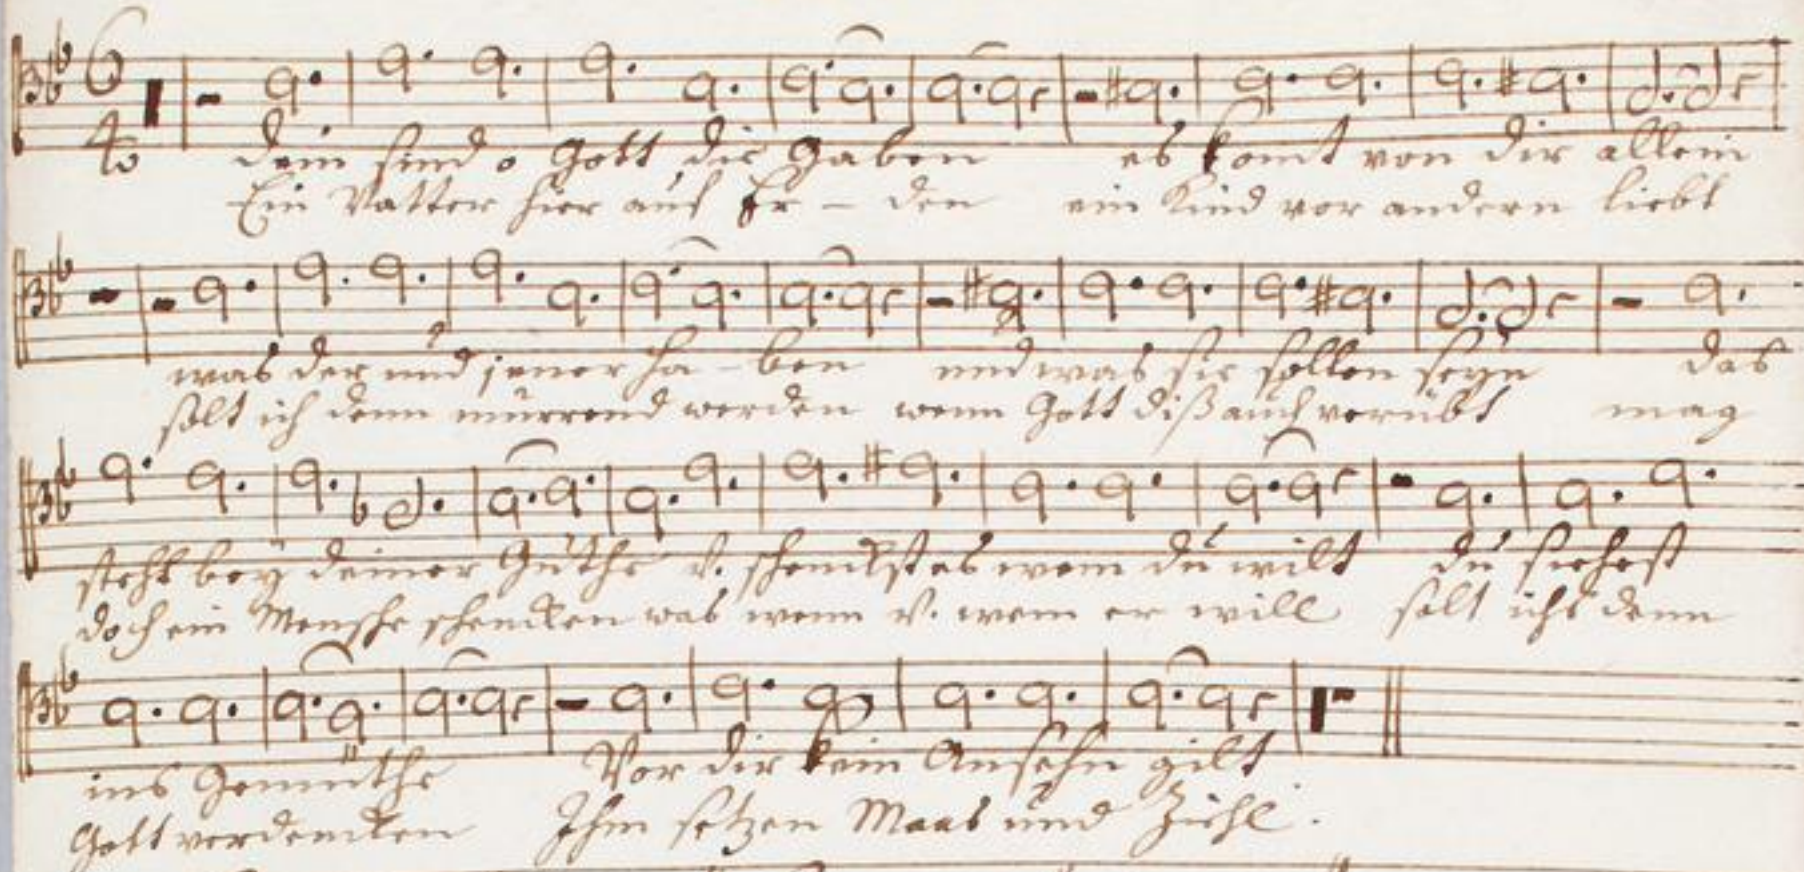 6
4
dein sind o Gott die Gaben es komt von dir allein
Ein Vatter hier auf Er - den ein Kind vor andern liebt
was der und jener ha - ben und was sie sollen seyn das
solt ich denn murrend werden wenn Gott diß auch verübt mag
steht bey deiner Güthe v. schenckst es wem du wilt du siehest
doch ein Mensche schencken was wenn v. wem er will solt ichs denn
ins Gemüthe Vor dir kein Ansehn gilt
Gott verdencken Ihm setzen Maas und Ziehl.